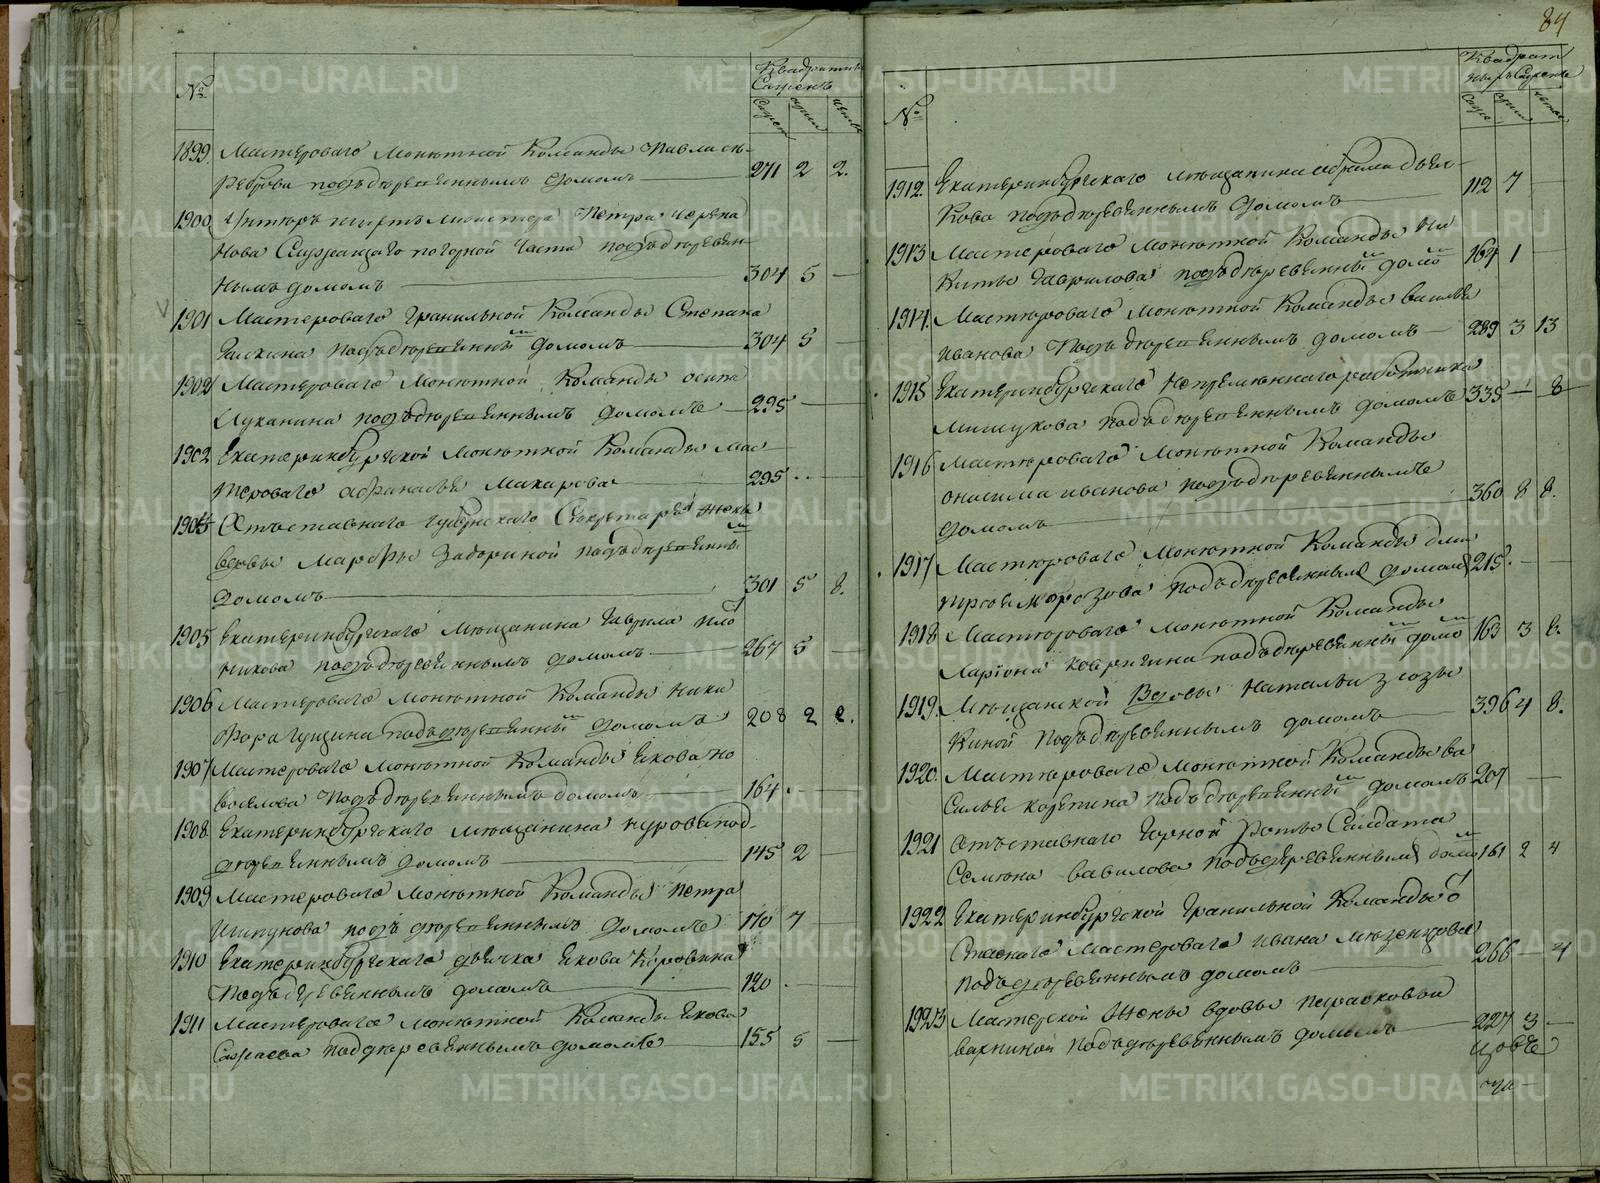 84
№
Квадратныхъ
Саженъ
1899. Мастероваго Монетной Команды Павла
реброва подъ деревяннымъ домомъ 271 2 2.
1900 Петра
нова подъ деревян-
нымъ домомъ 304 5 —
1901 Мастероваго Гранильной Команды Степана
подъ деревянны домомъ 304 5
1902 Мастероваго Монетной Команды Осипа
Луканина подъ деревяннымъ домомъ 295 —
1902 Екатеринбургской Монетной Команды мас
тероваго Афанасья Макарова 295 ..
Отъставнаго губернскаго Секретаря жены
вдовы Марфы подъ деревянны
домомъ 301 5 8.
1905 Екатеринбургскаго мещанина Гаврила Пло
никова подъ деревяннымъ домомъ 267 5 —
1906 Мастероваго Монетной Команды Ники
фора Гущина подъ деревянны домомъ 208 2 2.
1907 Мастероваго Монетной Команды Якова Но
воселова подъ деревяннымъ домомъ 164 . —
1908. Екатеринбургскаго мещанина под
деревяннымъ домомъ 145 2 —
1909 Мастероваго Монетной Команды Петра
Шипунова подъ деревяннымъ домомъ 170 7 —
1910 Екатеринбургскаго Якова Коровина
подъ деревяннымъ домомъ 120 .
1911 Мастероваго Монетной Команды Якова
подъ деревяннымъ домомъ 155 5 —
№
Квадрат
ныхъ Сажень
1912. Екатеринбургскаго мещанина
кова подъ деревяннымъ домомъ 112 7 —
1913 Мастероваго Монетной Команды Ни
киты Гаврилова подъ деревянны домо 164 1 —
1914. Мастероваго Монетной Команды Василья
Иванова подъ деревяннымъ домомъ 289 3 13
1915 Екатеринбургскаго Непременнаго работника
Мишукова подъ деревяннымъ домомъ 335 — 8
1916 Мастероваго Монетной Команды
Онисима Иванова подъ деревяннымъ
домомъ 360 8 8.
1917 Мастероваго Монетной Команды Дми
трея Морозова подъ деревянным домом 215. —
1918 Мастероваго Монетной Команды
Ларiона Ковригина подъ деревянны домо 163 3 8.
1919. Мещанской Вдовы Натальи
киной подъ деревяннымъ домомъ 396 4 8.
1920. Мастероваго Монетной Команды Ва
силья Карепина подъ деревянны домомъ 207 —
1921 Отъставнаго Горной роты Салдата
Семена Вавилова подъ деревянным домо 161 2 4
1922 Екатеринбургской Гранильной Команды о
Мастероваго Ивана Мезенцова
подъ деревяннымъ домомъ 266 — 4
1923 Мастерской жены вдовы Парасковьи
Вархиной подъ деревяннымъ домомъ 227 3 —
METRIKI.GASO-URAL.RU